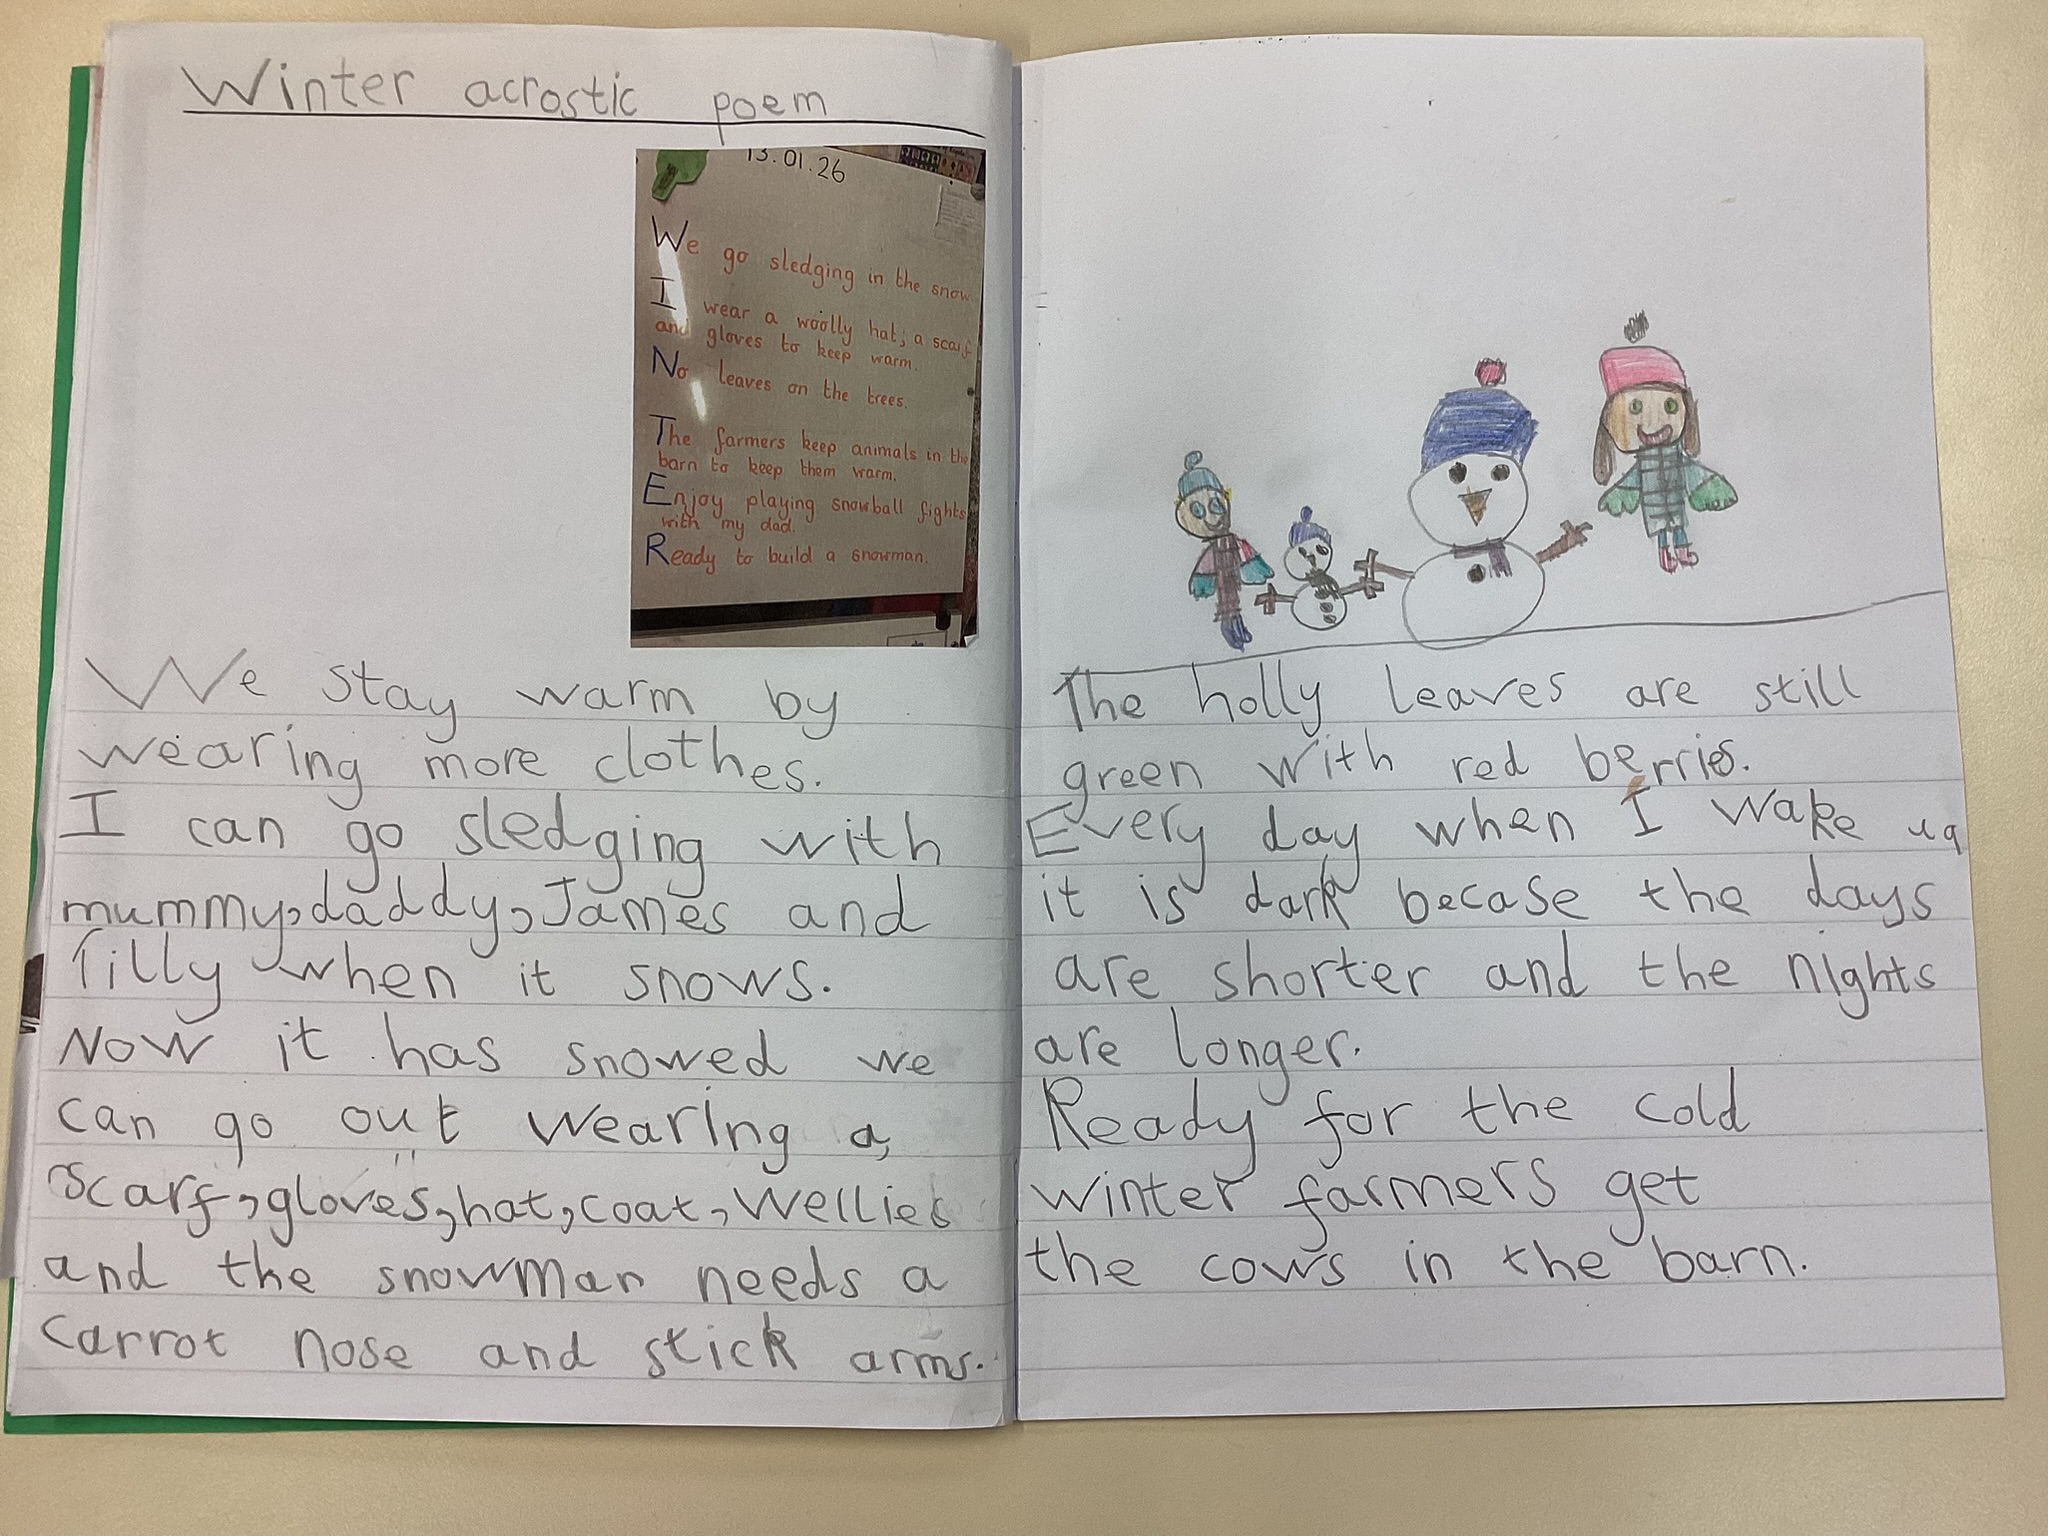 Winter acrostic poem
13.01.26
We go sledging in the snow
I wear a woolly hat, a scarf
and gloves to keep warm.
No leaves on the trees.
The farmers keep animals in the
barn to keep them warm.
Enjoy playing snowball fights
with my dad.
Ready to build a snowman.
We stay warm by
wearing more clothes.
I can go sledging with
mummy,daddy,James and
Tilly when it snows.
Now it has snowed we
can go out wearing a,
scarf,gloves,hat,coat,wellies
and the snowman needs a
carrot nose and stick arms.
The holly leaves are still
green with red berries.
Every day when I wake up
it is dark becase the days
are shorter and the nights
are longer.
Ready for the cold
winter farmers get
the cows in the barn.